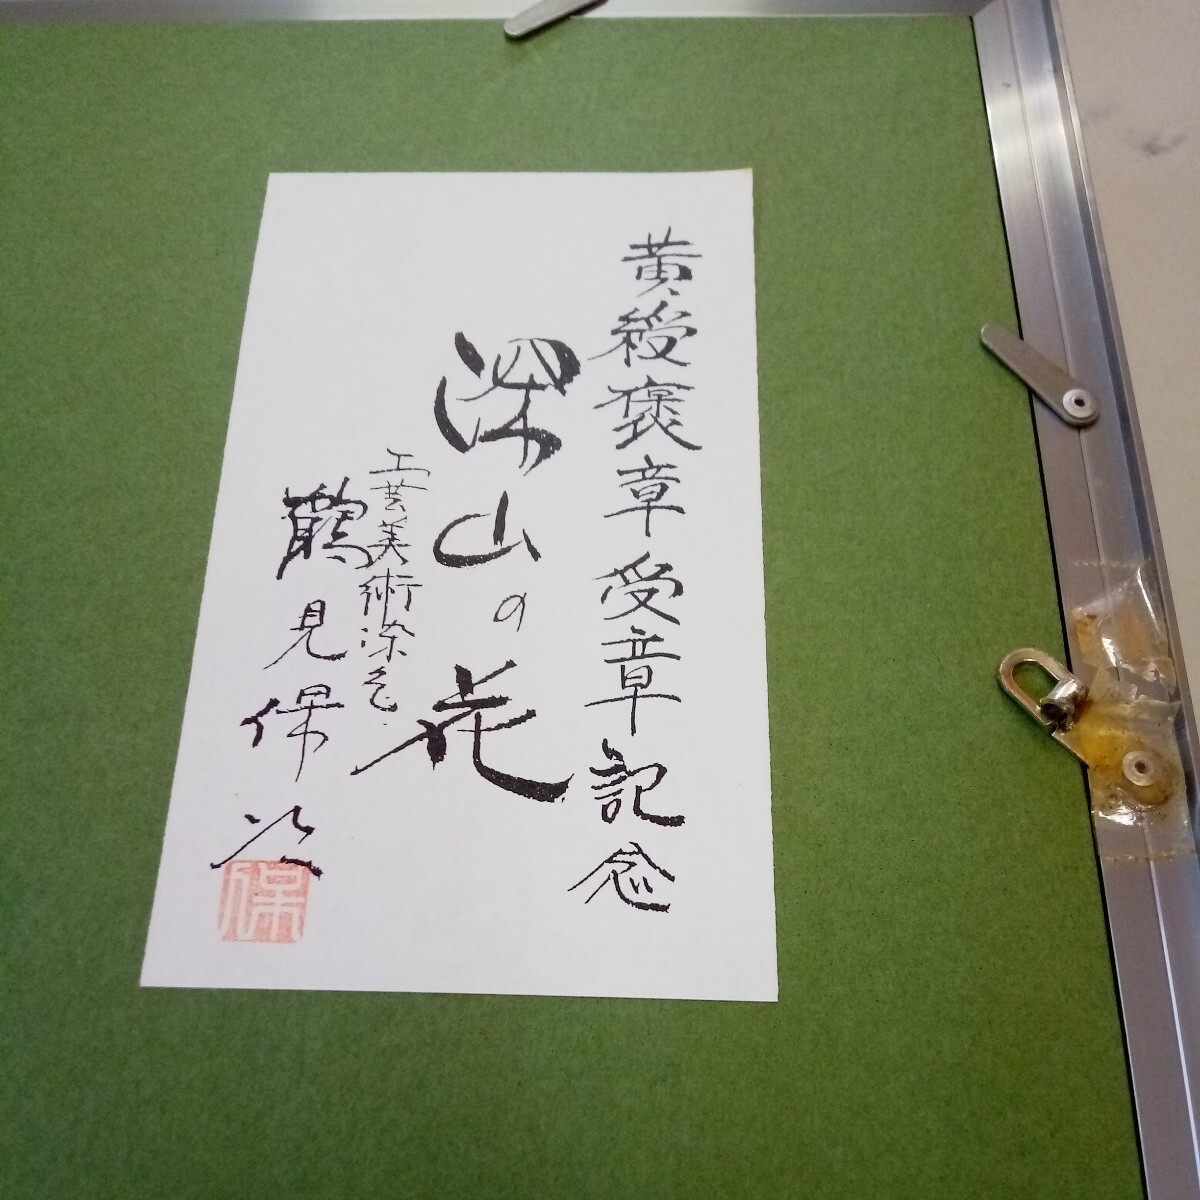 黄綬褒章受章記念
深山の花
工芸美術染色
鶴見保次
保